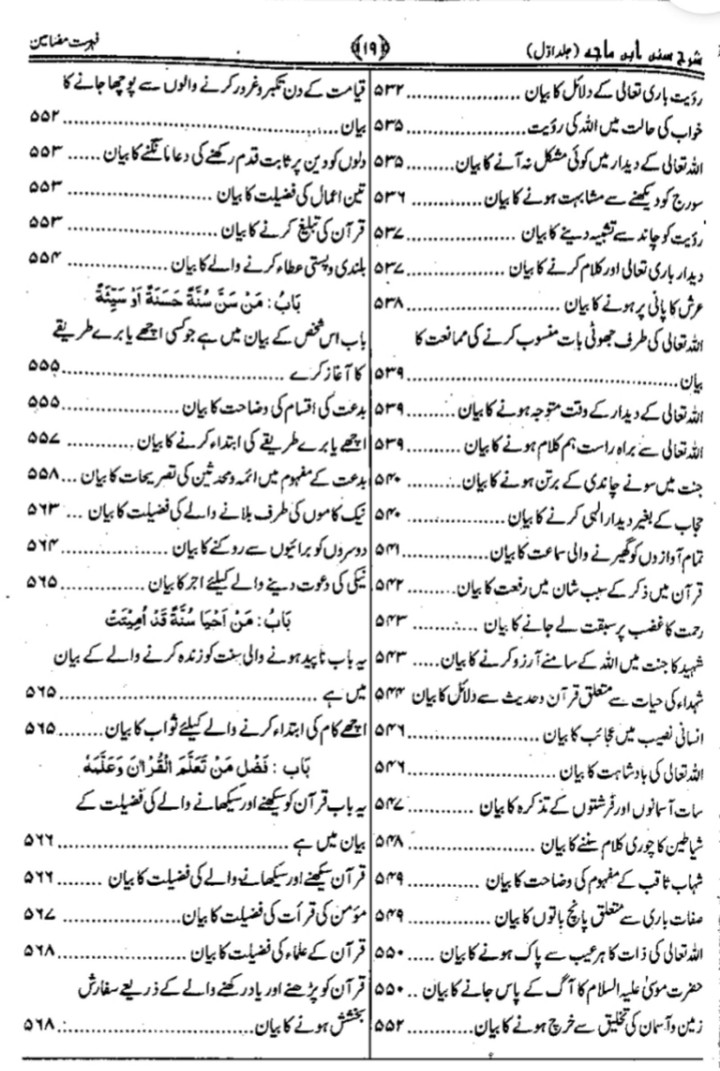 شرح سنن ابن ماجه (جلد اوّل)
﴿۱۹﴾
فہرست مضامین
رؤیت باری تعالیٰ کے دلائل کا بیان ...................... ۵۳۲
خواب کی حالت میں اللہ کی رؤیت ...................... ۵۳۵
اللہ تعالیٰ کے دیدار میں کوئی مشکل نہ آنے کا بیان .......... ۵۳۵
سورج کو دیکھنے سے مشابہت ہونے کا بیان ............. ۵۳۶
رؤیت کو چاند سے تشبیہ دینے کا بیان ................... ۵۳۷
دیدار باری تعالیٰ اور کلام کرنے کا بیان ................. ۵۳۷
عرش کا پانی پر ہونے کا بیان .......................... ۵۳۸
اللہ تعالیٰ کی طرف جھوٹی بات منسوب کرنے کی ممانعت کا
بیان .......................................... ۵۳۹
اللہ تعالیٰ کے دیدار کے وقت متوجہ ہونے کا بیان .......... ۵۳۹
اللہ تعالیٰ سے براہ راست ہم کلام ہونے کا بیان ........... ۵۳۹
جنت میں سونے چاندی کے برتن ہونے کا بیان .......... ۵۴۰
حجاب کے بغیر دیدار الٰہی کرنے کا بیان ................. ۵۴۰
تمام آوازوں کو گھیرنے والی سماعت کا بیان ............... ۵۴۱
قرآن میں ذکر کے سبب شان میں رفعت کا بیان ......... ۵۴۲
رحمت کا غضب پر سبقت لے جانے کا بیان ............ ۵۴۳
شہید کا جنت میں اللہ کے سامنے آرزو کرنے کا بیان ..... ۵۴۳
شہداء کی حیات سے متعلق قرآن وحدیث سے دلائل کا بیان ۵۴۴
انسانی نصیب میں عجائب کا بیان ...................... ۵۴۶
اللہ تعالیٰ کی بادشاہت کا بیان ........................ ۵۴۶
سات آسمانوں اور فرشتوں کے تذکرہ کا بیان ............ ۵۴۷
شیاطین کا چوری کلام سننے کا بیان ..................... ۵۴۸
شہاب ثاقب کے مفہوم کی وضاحت کا بیان ............ ۵۴۹
صفات باری سے متعلق پانچ باتوں کا بیان .............. ۵۴۹
اللہ تعالیٰ کی ذات کا ہر عیب سے پاک ہونے کا بیان ..... ۵۵۰
حضرت موسیٰ علیہ السلام کا آگ کے پاس جانے کا بیان .. ۵۵۰
زمین و آسمان کی تخلیق سے خرچ ہونے کا بیان ........... ۵۵۲
قیامت کے دن تکبر و غرور کرنے والوں سے پوچھا جانے کا
بیان .......................................... ۵۵۲
دلوں کو دین پر ثابت قدم رکھنے کی دعا مانگنے کا بیان ...... ۵۵۳
تین اعمال کی فضیلت کا بیان ......................... ۵۵۳
قرآن کی تبلیغ کرنے کا بیان .......................... ۵۵۳
بلندی و پستی عطاء کرنے والے کا بیان ................. ۵۵۴
بَابُ : مَنْ سَنَّ سُنَّةً حَسَنَةً اَوْ سَيِّئَةً
باب اس شخص کے بیان میں ہے جو کسی اچھے یا برے طریقے
کا آغاز کرے .................................... ۵۵۵
بدعت کی اقسام کی وضاحت کا بیان ................... ۵۵۵
اچھے یا برے طریقے کی ابتداء کرنے کا بیان ............ ۵۵۷
بدعت کے مفہوم میں ائمہ ومحدثین کی تصریحات کا بیان ... ۵۵۸
نیک کاموں کی طرف بلانے والے کی فضیلت کا بیان ... ۵۶۳
دوسروں کو برائیوں سے روکنے کا بیان .................. ۵۶۴
نیکی کی دعوت دینے والے کیلئے اجر کا بیان ............. ۵۶۵
بَابُ : مَنْ اَحْيَا سُنَّةً قَدْ اُمِيْتَتْ
یہ باب ناپید ہونے والی سنت کو زندہ کرنے والے کے بیان
میں ہے ........................................ ۵۶۵
اچھے کام کی ابتداء کرنے والے کیلئے ثواب کا بیان ........ ۵۶۵
بَاب : فَضْلِ مَنْ تَعَلَّمَ الْقُرْاٰنَ وَعَلَّمَهٗ
یہ باب قرآن کو سیکھنے اور سیکھانے والے کی فضیلت کے
بیان میں ہے .................................... ۵۶۶
قرآن سیکھنے اور سیکھانے والے کی فضیلت کا بیان ........ ۵۶۶
مؤمن کی قرأت کی فضیلت کا بیان .................... ۵۶۷
قرآن کے علماء کی فضیلت کا بیان ..................... ۵۶۸
قرآن کو پڑھنے اور یاد رکھنے والے کے ذریعے سفارش
بخشش ہونے کا بیان .............................. ۵۶۸